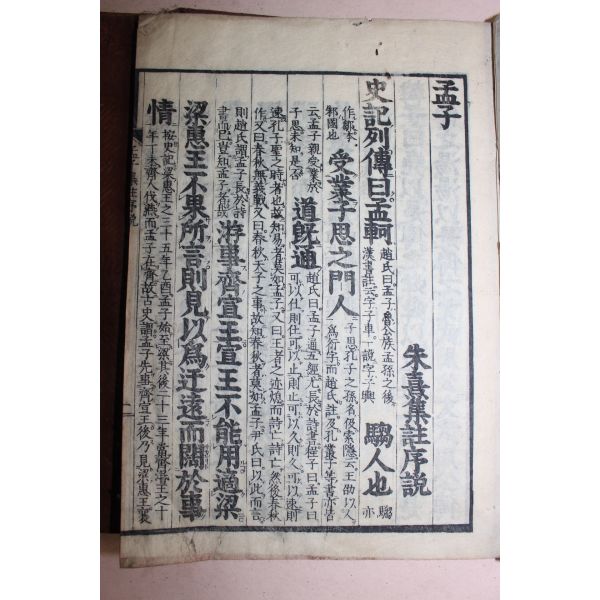 孟子
朱熹集註序說
史記列傳曰孟軻
趙氏曰孟子魯公族孟孫之後
漢書註云字子車一說字子輿
騶人也
騶亦
作鄒本
邾國也
受業子思之門人
子思孔子之孫名伋索隱云王劭以人
爲衍字而趙氏註及孔叢子等書亦皆
云孟子親受業於
子思未知是否
道旣通
趙氏曰孟子通五經尤長於詩書程子曰孟子曰
可以仕則仕可以止則止可以久則久可以速則
速孔子聖之時者也故知易者莫如孟子又曰王者之迹熄而詩亡詩亡然後春秋
作又曰春秋無義戰又曰春秋天子之事故知春秋者莫如孟子尹氏曰以此而言
則趙氏謂孟子長於詩
書而已豈知孟子者哉
游事齊宣王宣王不能用適梁
梁惠王不果所言則見以爲迂遠而闊於事
情
按史記梁惠王之三十五年乙酉孟子始至梁其後二十三年當齊湣王之十
年丁未齊人伐燕而孟子在齊故古史謂孟子先事齊宣王後乃見梁惠王襄
集註序說